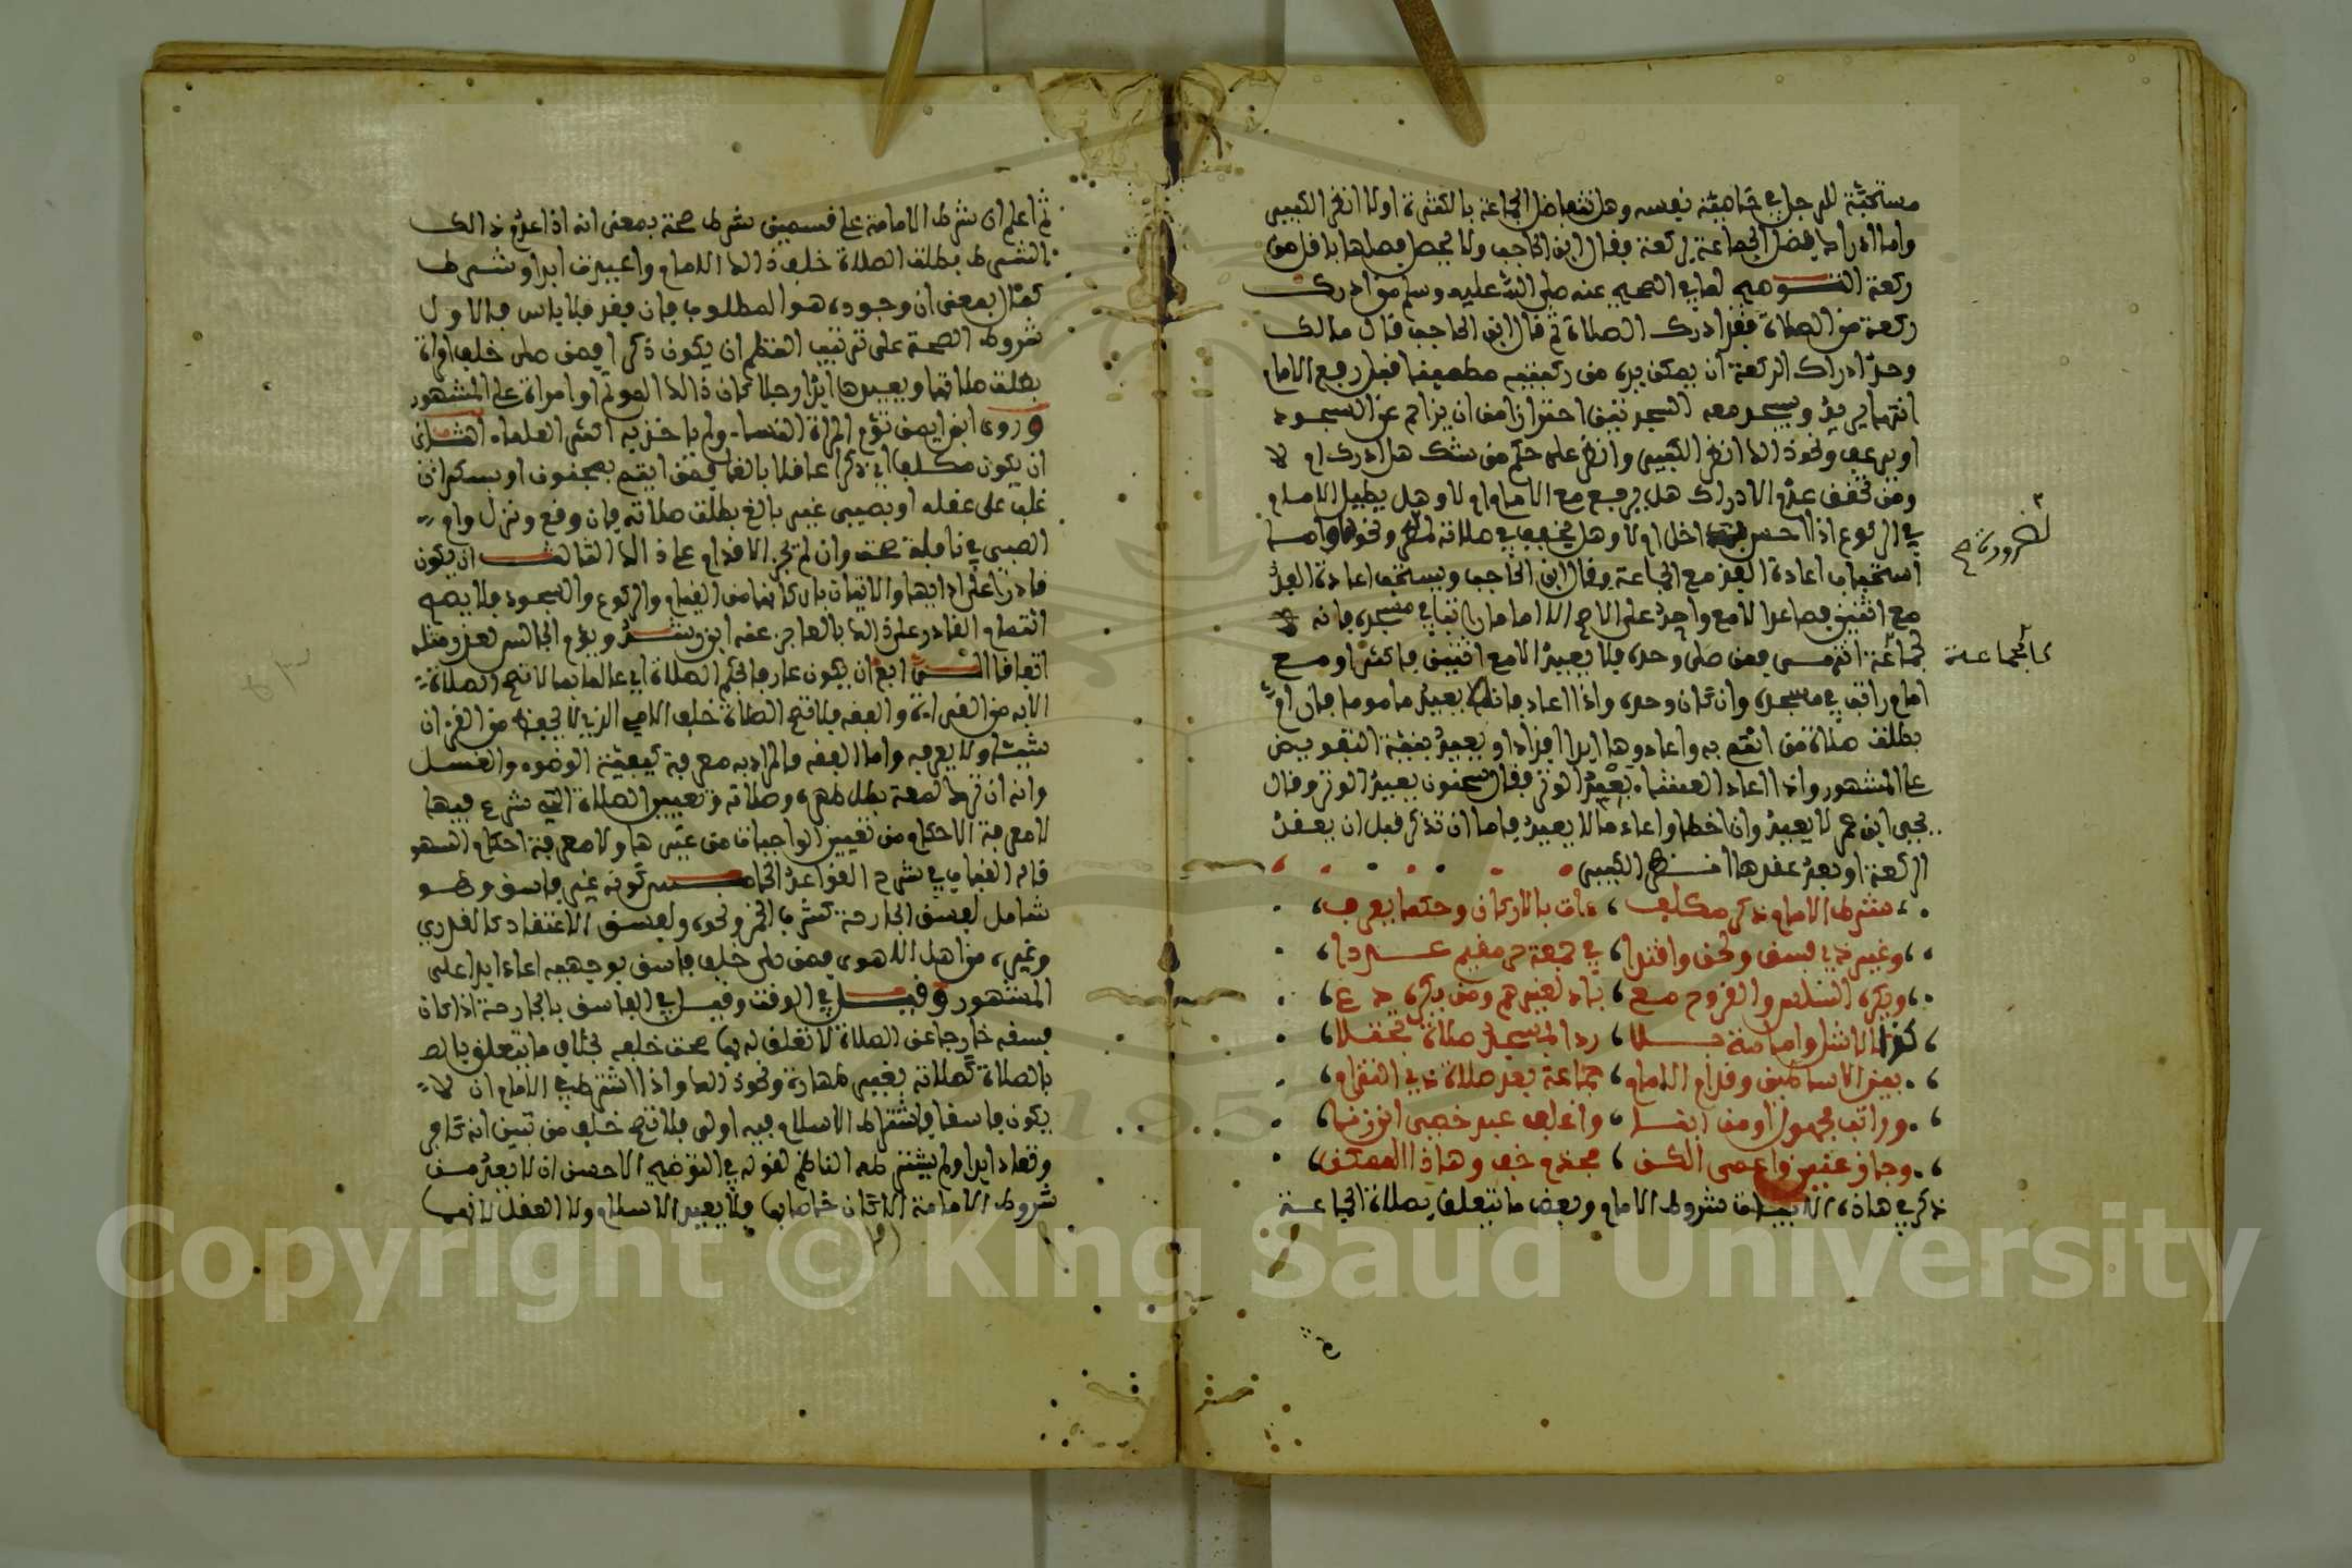 مستحبة للرجل في خاصة نفسه وهل تتفاضل الجماعة بالكثرة اولا انظر الكبير
واما ادراك فضل الجماعة بركعة فقال ابن الحاجب ولا يحصل فضلها باقل من
ركعة التوضيح لما في الصحيح عنه صلى الله عليه وسلم من ادرك
ركعة من الصلاة فقد ادرك الصلاة ثم قال ابن الحاجب قال مالك
وحد ادراك الركعة ان يمكن يديه من ركبتيه مطمئنا قبل رفع الامام
انتهى يريد ويسجد معه السجدتين احترازا من ان يزاحم عن السجود
او يرعف ونحو ذالك انظر الكبير وانظر على حكم من شك هل ادرك ام لا
ومن تحقق عدم الادراك هل يرفع مع الامام ام لا وهل يطيل الامام
في الركوع اذا احس داخل ام لا وهل يخفف في صلاته ونحوه واما
لضرورة صح
استحباب اعادة الفذ مع الجماعة فقال ابن الحاجب ويستحب اعادة الفذ
مع اثنين فصاعدا لا مع واحد على الاصح الا اماما راتبا في مسجد فانه
كالجماعة
كجماعة انتهى فمن صلى وحده فلا يعيد الا مع اثنين فاكثر او مع
امام راتب في مسجده وان كان وحده واذا اعاد فانه يعيد ماموما فان ام
بطلت صلاة من ائتم به واعادوها ابدا افذاذا ويعيد بنية التفويض
على المشهور واذا اعاد العشاء يعيد الوتر فقال سحنون يعيد الوتر وقال
يحيى ابن عمر لا يعيد وان اخطا واعاد ما لا يعيد فاما ان تذكر قبل ان يعقد
الركعة او بعد عقدها انظر الكبير
شرط الامام ذكر مكلف ، ءات بالاركان وحكما يعرف
وغير ذي فسق ولحن واقتدا ، في جمعة حر مقيم عددا
ويكره السلس والقروح مع ، باد لغيرهم ومن يكره دع
كذا الاشل وامامة بلا ، ردا بمسجد صلاة تجتلى
بين الاساطين وقدام الامام ، جماعة بعد صلاة ذي التزام
وراتب مجهول او من ابنا ، واغلف عبد خصي ابن زنا
وجاز عنين واعمى الكن ، مجذم خف وهاذا الممكن
ذكر في هاذه الابيات شروط الامام وبعض ما يتعلق بصلاة الجماعة
ثم اعلم ان شرط الامامة على قسمين شرط صحة بمعنى انه اذا عدم ذالك
الشرط بطلت الصلاة خلف ذالك الامام واعيدت ابدا وشرط
كمال بمعنى ان وجوده هو المطلوب فان فقد فلا باس فالاول
شروط الصحة على ترتيب النظم ان يكون ذكرا فمن صلى خلف امراة
بطلت صلاته ويعيدها ابدا رجلا كان ذالك الموتم او امراة على المشهور
وروى ابن ايمن تؤم المراة النساء ولم ياخذ به اكثر العلماء الثاني
ان يكون مكلفا اي ذكرا عاقلا بالغا فمن ايتم بمجنون او بسكران
غلب على عقله او بصبي غير بالغ بطلت صلاته فان وقع ونزل وام
الصبي في نافلة صحت وان لم تجز الاقدام على ذالك الثالث ان يكون
قادرا على ادائها والاتيان باركانها من القيام والركوع والسجود فلا يصح
ائتمام القادر على ذالك بالعاجز عنه ابن رشد ويؤم الجالس لعذر مثله
اتفاقا الرابع ان يكون عارفا بحكم الصلاة اي عالما بما لا تصح الصلاة
الا به من القراءة والفقه فلا تصح الصلاة خلف الامي الذي لا يحفظ من القرءان
شيئا ولا يعرفه واما الفقه فالمراد به معرفة كيفية الوضوء والغسل
وانه ان ترك لمعة بطل طهره وصلاته وتعيين الصلاة التي شرع فيها
لا معرفة الاحكام من تعيين الواجبات من غيرها ولا معرفة احكام السهو
قاله القباب في شرح القواعد الخامس كونه غير فاسق وهو
شامل لفسق الجارحة كشرب الخمر ونحوه ولفسق الاعتقاد كالقدري
وغيره من اهل الاهوى فمن صلى خلف فاسق بوجهيه اعاد ابدا على
المشهور وقيل في الوقت وقيل في الفاسق بالجارحة اذا كان
فسقه خارجا عن الصلاة لا تعلق له بها صحت خلفه بخلاف ما يتعلق
بالصلاة كصلاته بغير طهارة ونحو ذالك واذا اشترط في الامام ان لا
يكون فاسقا فاشتراط الاسلام فيه اولى فلا تصح خلف من تبين انه كافر
وتعاد ابدا ولم يشترطه الناظم لقوله في التوضيح الاحسن ان لا يعد من
شروط الامامة الا ما كان خاصا بها فلا يعد الاسلام ولا العقل لانهما